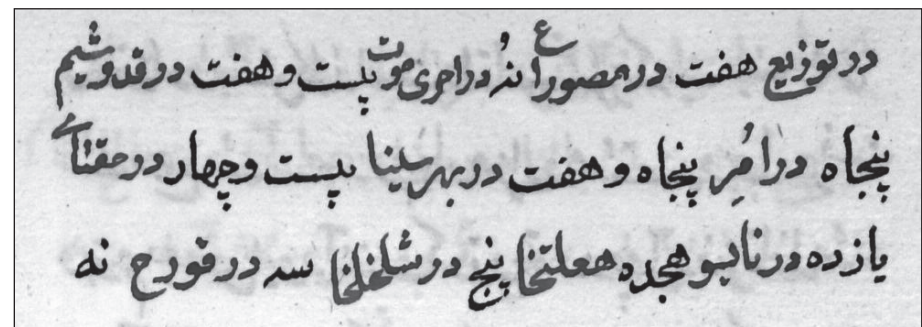 در توزیع هفت در مصوراع نه در احری موت بیست و هفت در قدوشیم
پنجاه در امُر پنجاه و هفت در بهر سینا بیست و چهار در حقتای
یازده در ناسو هجده هعلتخا پنج در شلخلخا سه در قورح نه